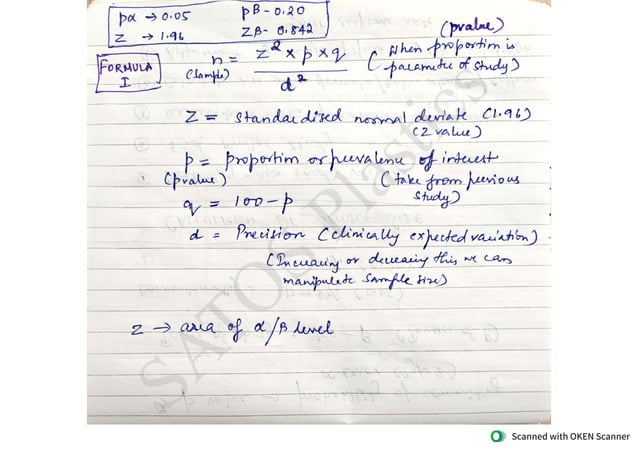 pα → 0.05 pβ - 0.20
Z → 1.96 Zβ - 0.842
(pvalue)
FORMULA I
n = z² × p × q / d² (When proportion is parameter of study)
(Sample)
Z = standardised normal deviate (1.96)
(Z value)
p = proportion or prevalence of interest
(pvalue) (take from previous study)
q = 100 - p
d = Precision (clinically expected variation)
(Increasing or decreasing this we can
manipulate sample size)
Z → area of α/β level
SATOS Plastics
Scanned with OKEN Scanner